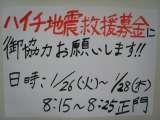 ハイチ地震救援募金に
御協力お願いします!!
日時:1/26(火)~1/28(木)
8:15~8:25正門